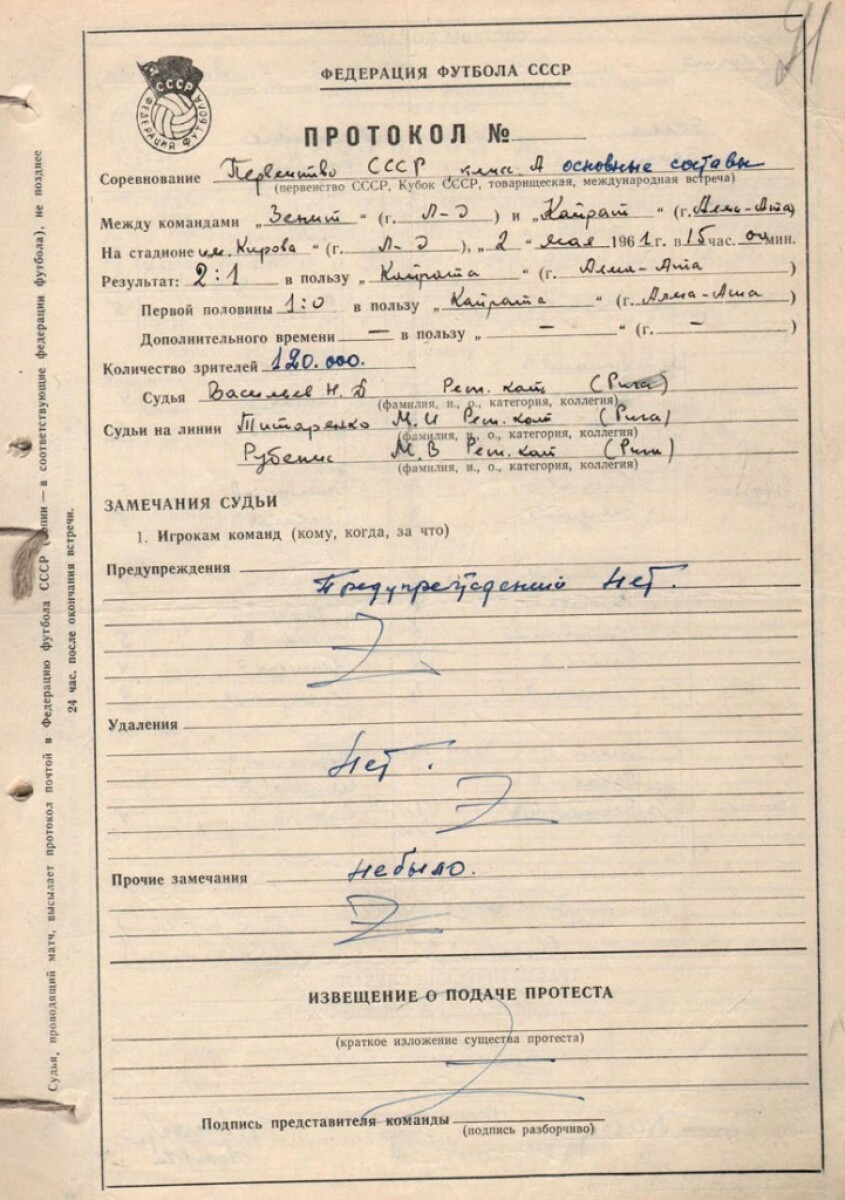 91
СССР
ФЕДЕРАЦИЯ ФУТБОЛА
ФЕДЕРАЦИЯ ФУТБОЛА СССР
ПРОТОКОЛ №
Соревнование Первенство СССР класс А основные составы
(первенство СССР, Кубок СССР, товарищеская, международная встреча)
Между командами „Зенит“ (г. Л-Д) и „Кайрат“ (г. Алма-Ата)
На стадионе им. Кирова“ (г. Л-Д), „2“ мая 1961 г. в 15 час. 00 мин.
Результат: 2:1 в пользу „Кайрата“ (г. Алма-Ата)
Первой половины 1:0 в пользу „Кайрата“ (г. Алма-Ата)
Дополнительного времени — в пользу „ — “ (г. — )
Количество зрителей 120.000.
Судья Васильев Н. Д Респ. кат (Рига)
(фамилия, и., о., категория, коллегия)
Судьи на линии Титаренко М. И Респ. кат (Рига)
(фамилия, и., о., категория, коллегия)
Рубенис М. В Респ. кат (Рига)
(фамилия, и., о., категория, коллегия)
ЗАМЕЧАНИЯ СУДЬИ
1. Игрокам команд (кому, когда, за что)
Предупреждения
Предупреждений Нет.
Удаления
Нет.
Прочие замечания не было.
ИЗВЕЩЕНИЕ О ПОДАЧЕ ПРОТЕСТА
(краткое изложение существа протеста)
Подпись представителя команды
(подпись разборчиво)
Судья, проводящий матч, высылает протокол почтой в Федерацию футбола СССР (копии — в соответствующие федерации футбола), не позднее
24 час. после окончания встречи.